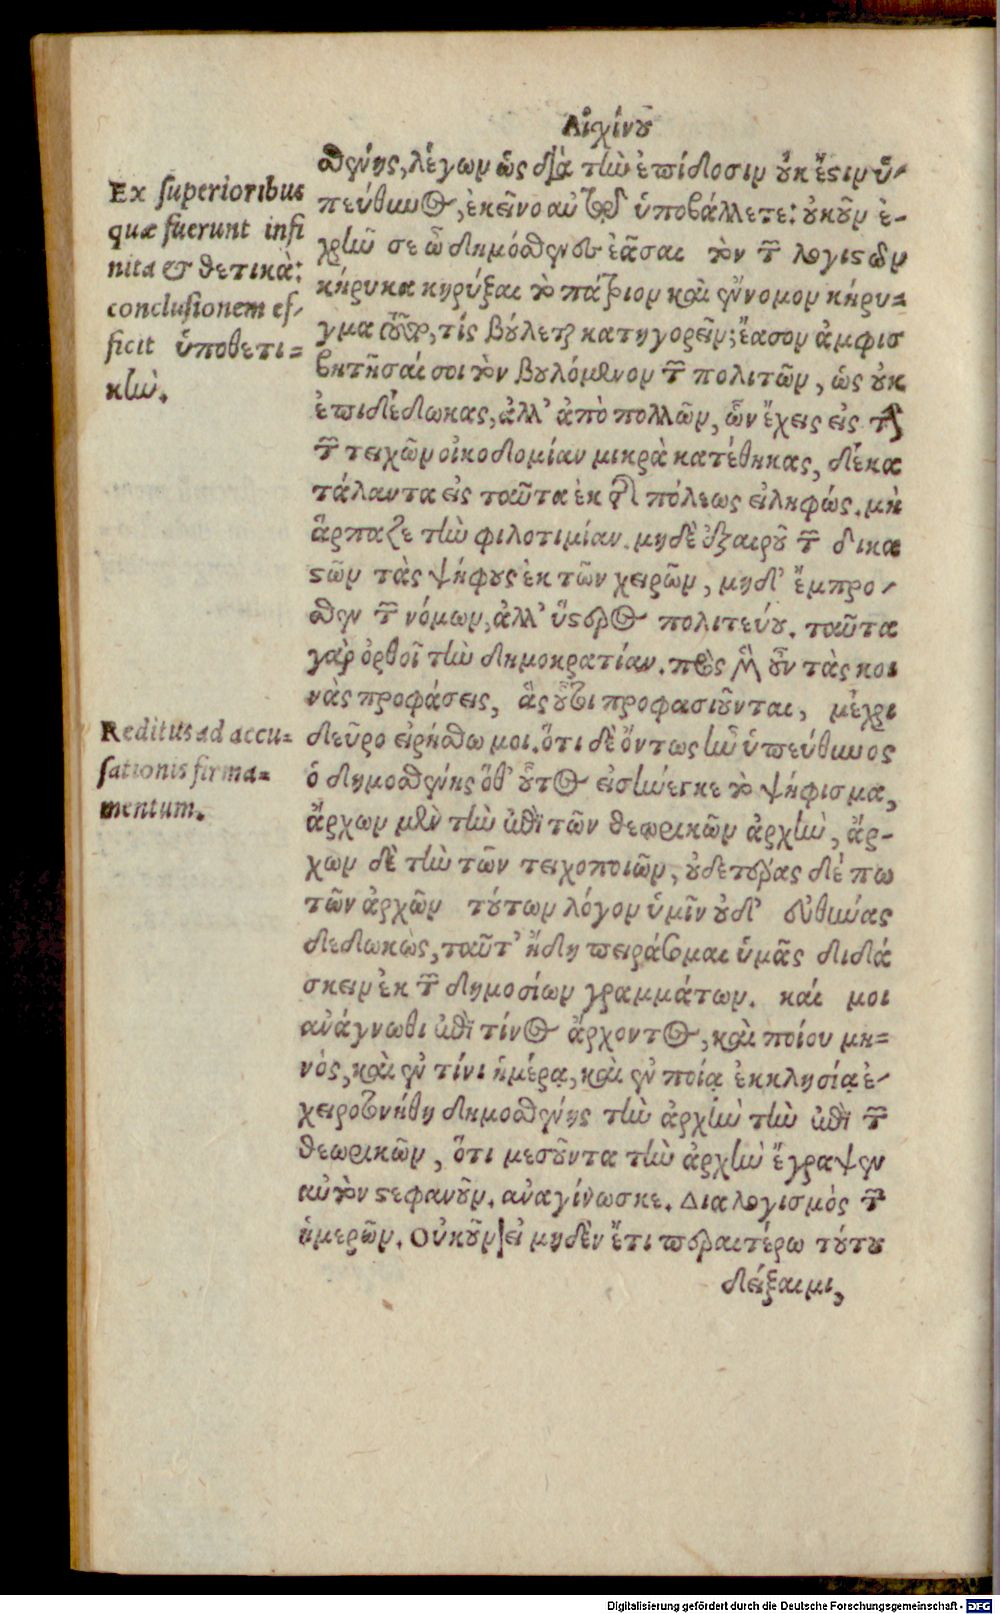 Αἰχίνου
σθένης, λέγων ὡς διὰ τὴν ἐπίδοσιν οὐκ ἔστιν ὑ-
πεύθυνος, ἐκεῖνο αὐτῷ ὑποβάλλετε: οὐκοῦν ἐ-
χρῆν σε ὦ δημόσθενες ἐᾶσαι τὸν τῶν λογιστῶν
κήρυκα κηρύξαι τὸ πάτριον καὶ ἔννομον κήρυ=
γμα τοῦτο, τίς βούλεται κατηγορεῖν; ἔασον ἀμφισ
βητῆσαί σοι τὸν βουλόμενον τῶν πολιτῶν, ὡς οὐκ
ἐπιδέδωκας, ἀλλ' ἀπὸ πολλῶν, ὧν ἔχεις εἰς τὴν
τῶν τειχῶν οἰκοδομίαν μικρὰ κατέθηκας, δέκα
τάλαντα εἰς ταῦτα ἐκ τῆς πόλεως εἰληφώς. μὴ
ἅρπαζε τὴν φιλοτιμίαν. μηδὲ ἐξαιροῦ τῶν δικα
στῶν τὰς ψήφους ἐκ τῶν χειρῶν, μηδ' ἔμπρο-
σθεν τῶν νόμων, ἀλλ' ὕστερος πολιτεύου. ταῦτα
γὰρ ὀρθοῖ τὴν δημοκρατίαν. πρὸς μὲν οὖν τὰς κοι
νὰς προφάσεις, ἃς οὗτοι προφασιοῦνται, μέχρι
δεῦρο εἰρήσθω μοι. ὅτι δὲ ὄντως ἦν ὑπεύθυνος
ὁ δημοσθένης ὅθ' οὗτος εἰσήνεγκε τὸ ψήφισμα,
ἄρχων μὲν τὴν ἐπὶ τῶν θεωρικῶν ἀρχὴν, ἄρ-
χων δὲ τὴν τῶν τειχοποιῶν, οὐδετέρας δέ πω
τῶν ἀρχῶν τούτων λόγον ὑμῖν οὐδ' εὐθύνας
δεδωκὼς, ταῦτ' ἤδη πειράσομαι ὑμᾶς διδά
σκειν ἐκ τῶν δημοσίων γραμμάτων. καί μοι
ἀνάγνωθι ἐπὶ τίνος ἄρχοντος, καὶ ποίου μη=
νὸς, καὶ ἐν τίνι ἡμέρᾳ, καὶ ἐν ποίᾳ ἐκκλησίᾳ ἐ-
χειροτονήθη δημοσθένης τὴν ἀρχὴν τὴν ἐπὶ τῶν
θεωρικῶν, ὅτι μεσοῦντα τὴν ἀρχὴν ἔγραψεν
αὐτὸν στεφανοῦν. ἀναγίνωσκε. Διαλογισμὸς τῶν
ἡμερῶν. Οὐκοῦν εἰ μηδὲν ἔτι περαιτέρω τούτου
δείξαιμι,
Ex superioribus
quæ fuerunt infi
nita & θετικὰ:
conclusionem ef-
ficit ὑποθετι=
κήν.
Reditus ad accu=
sationis firma=
mentum.
Digitalisierung gefördert durch die Deutsche Forschungsgemeinschaft - DFG